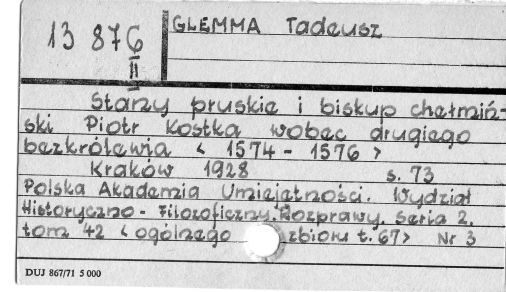 GLEMMA Tadeusz
13 876
II
Stany pruskie i biskup chełmiń-
ski Piotr Kostka wobec drugiego
bezkrólewia < 1574 - 1576 >
Kraków 1928 s. 73
Polska Akademia Umiejętności. Wydział
Historyczno - Filozoficzny. Rozprawy. Seria 2.
tom 42 < ogólnego zbioru t. 67> Nr 3
DUJ 867/71 5 000